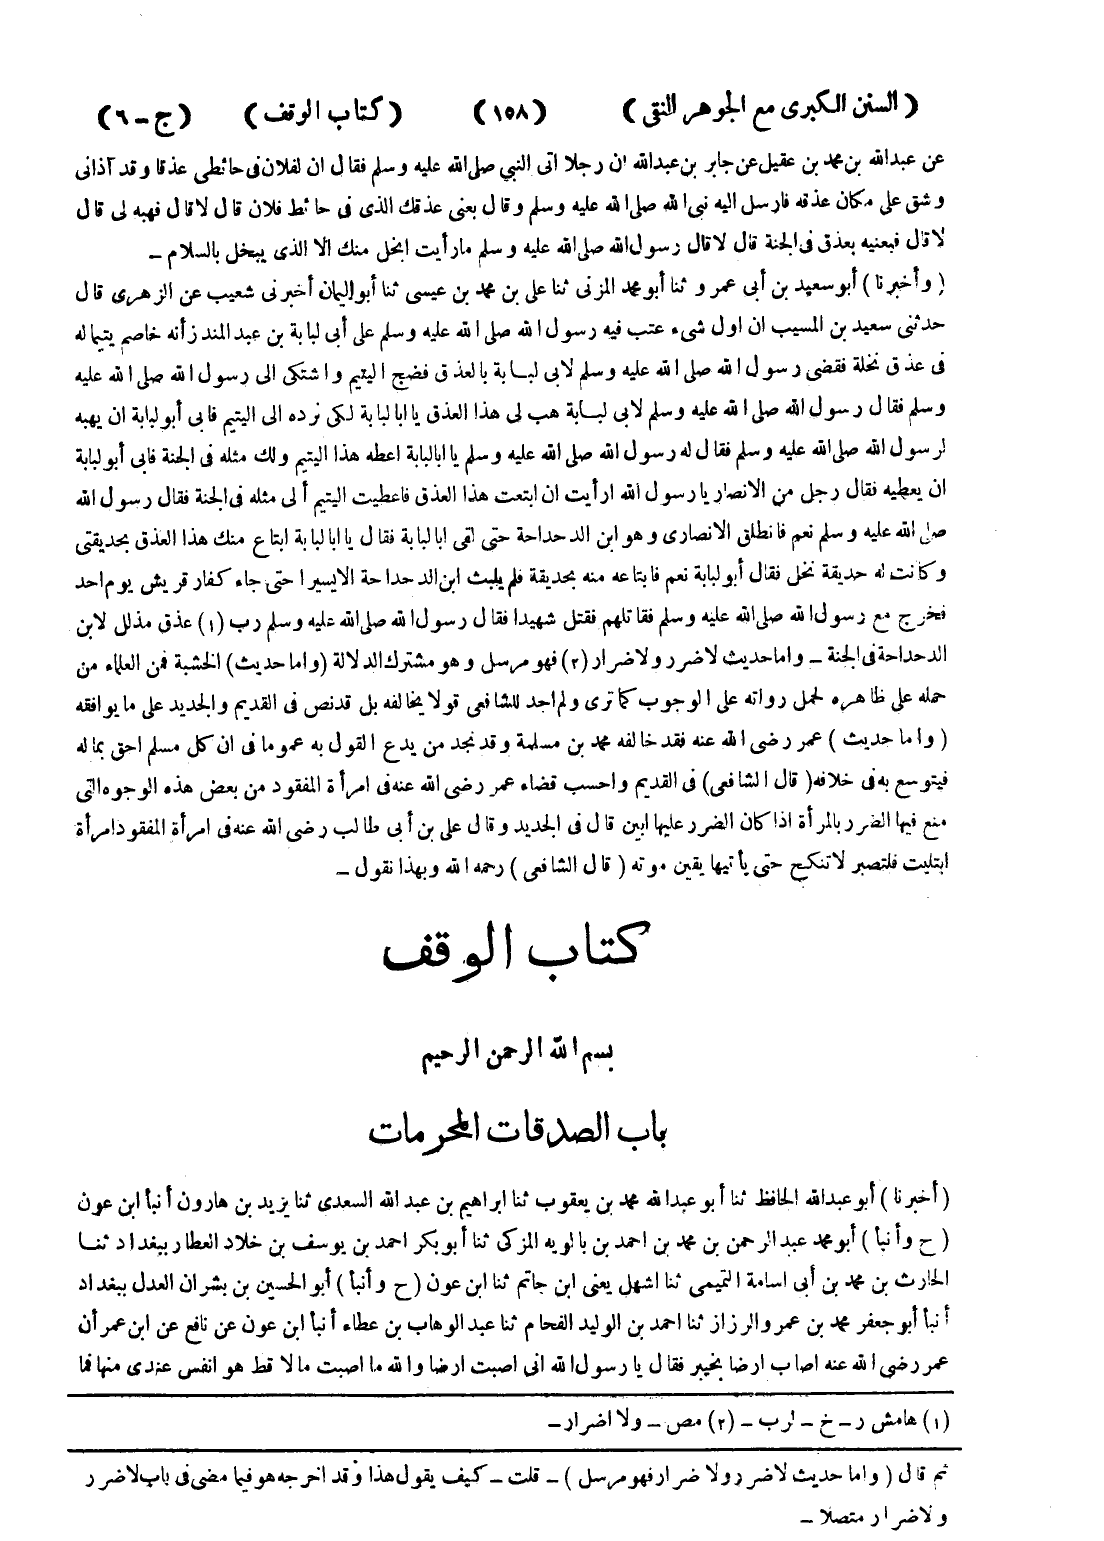 ( السنن الكبرى مع الجوهر النقى ) (١٥٨) ( كتاب الوقف ) ( ج - ٦ )
عن عبدالله بن محمد بن عقيل عن جابر بن عبدالله ان رجلا اتى النبي صلى الله عليه وسلم فقال ان لفلان فى حائطى عذقا وقد آذانى
وشق على مكان عذقه فارسل اليه نبى الله صلى الله عليه وسلم وقال بعنى عذقك الذى فى حائط فلان قال لا قال فهبه لى قال
لا قال فبعنيه بعذق فى الجنة قال لا قال رسول الله صلى الله عليه وسلم مارأيت ابخل منك الا الذى يبخل بالسلام -
( وأخبرنا ) أبوسعيد بن أبى عمرو ثنا أبو محمد المزنى ثنا على بن محمد بن عيسى ثنا أبواليمان أخبرنى شعيب عن الزهرى قال
حدثنى سعيد بن المسيب ان اول شىء عتب فيه رسول الله صلى الله عليه وسلم على أبى لبابة بن عبد المنذر أنه خاصم يتيما له
فى عذق نخلة فقضى رسول الله صلى الله عليه وسلم لابى لبابة بالعذق فضج اليتيم واشتكى الى رسول الله صلى الله عليه
وسلم فقال رسول الله صلى الله عليه وسلم لابى لبابة هب لى هذا العذق يا ابا لبابة لكى نرده الى اليتيم فابى أبولبابة ان يهبه
لرسول الله صلى الله عليه وسلم فقال له رسول الله صلى الله عليه وسلم يا ابالبابة اعطه هذا اليتيم ولك مثله فى الجنة فابى أبولبابة
ان يعطيه فقال رجل من الانصار يا رسول الله ارأيت ان ابتعت هذا العذق فاعطيت اليتيم ألى مثله فى الجنة فقال رسول الله
صلى الله عليه وسلم نعم فانطلق الانصارى وهو ابن الدحداحة حتى لقى ابا لبابة فقال يا ابا لبابة ابتاع منك هذا العذق بحديقتى
وكانت له حديقة نخل فقال أبولبابة نعم فابتاعه منه بحديقة فلم يلبث ابن الدحداحة الا يسيرا حتى جاء كفار قريش يوم احد
فخرج مع رسول الله صلى الله عليه وسلم فقاتلهم فقتل شهيدا فقال رسول الله صلى الله عليه وسلم رب (١) عذق مذلل لابن
الدحداحة فى الجنة - واما حديث لا ضرر ولا ضرار (٢) فهو مرسل وهو مشترك الدلالة (واما حديث) الخشبة فمن العلماء من
حمله على ظاهره لحمل رواته على الوجوب كما ترى ولم اجد للشافعى قولا يخالفه بل قد نص فى القديم والجديد على ما يوافقه
( واما حديث ) عمر رضى الله عنه فقد خالفه محمد بن مسلمة وقد نجد من يدع القول به عموما فى ان كل مسلم احق بماله
فيتوسع به فى خلافه ( قال الشافعى) فى القديم واحسب قضاء عمر رضى الله عنه فى امرأة المفقود من بعض هذه الوجوه التى
منع فيها الضرر بالمرأة اذا كان الضرر عليها ابين قال فى الجديد وقال على بن أبى طالب رضى الله عنه فى امرأة المفقود امرأة
ابتليت فلتصبر لا تنكح حتى يأتيها يقين موته ( قال الشافعى ) رحمه الله وبهذا نقول -
كتاب الوقف
بسم الله الرحمن الرحيم
باب الصدقات المحرمات
( أخبرنا ) أبو عبدالله الحافظ ثنا أبو عبدالله محمد بن يعقوب ثنا ابراهيم بن عبد الله السعدى ثنا يزيد بن هارون أنبأ ابن عون
( ح وأنبأ ) أبو محمد عبد الرحمن بن محمد بن احمد بن بالويه المزكى ثنا أبو بكر احمد بن يوسف بن خلاد العطار ببغداد ثنا
الحارث بن محمد بن أبى اسامة التميمى ثنا اشهل يعنى ابن حاتم ثنا ابن عون ( ح وأنبأ ) أبو الحسين بن بشران العدل ببغداد
أنبأ أبو جعفر محمد بن عمرو الرزاز ثنا احمد بن الوليد الفحام ثنا عبد الوهاب بن عطاء أنبأ ابن عون عن نافع عن ابن عمر أن
عمر رضى الله عنه اصاب ارضا بخيبر فقال يا رسول الله انى اصبت ارضا والله ما اصبت مالا قط هو انفس عندى منها فما
(١) هامش ر - خ - لرب - (٢) مص - ولا اضرار -
ثم قال ( واما حديث لا ضرر ولا ضرار فهو مرسل ) - قلت - كيف يقول هذا وقد اخرجه هو فيما مضى فى باب لا ضرر
ولا ضرار متصلا -